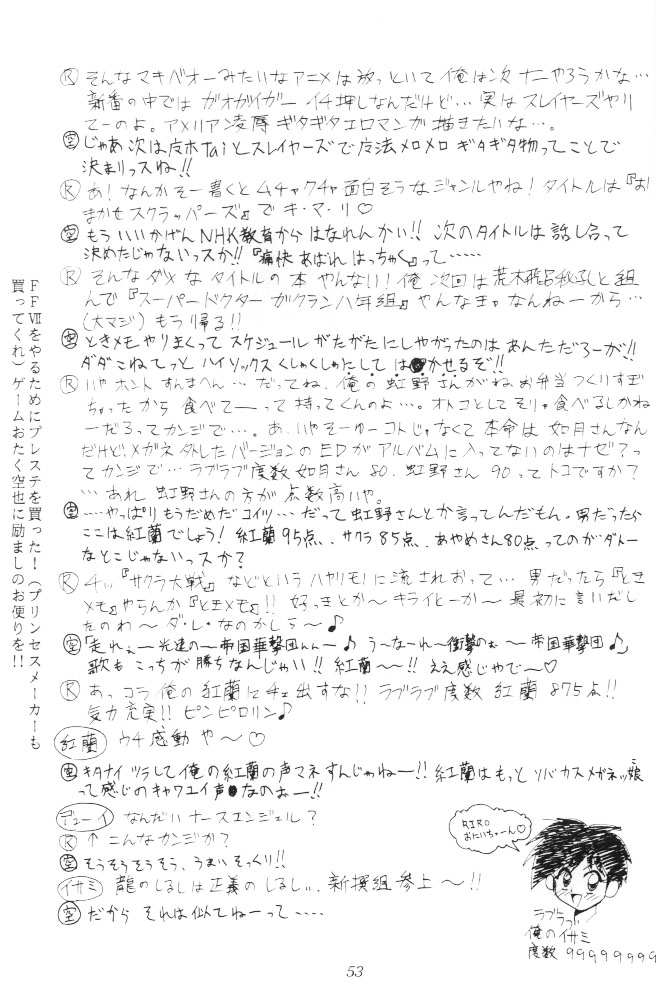 Ⓡ そんなマキバオーみたいなアニメは放っといて俺は次ナニやろうかな…
新番の中ではガオガイガーイチ押しなんだけど…実はスレイヤーズやり
てーのよ。アメリアン凌辱ギタギタエロマンガ描きたいな…。
空 じゃあ次は皮ホtaiとスレイヤーズで魔法メロメロギタギタ物ってことで
決まりっスね!!
Ⓡ あ!なんかそー書くとムチャクチャ面白そうなジャンルやね!タイトルは『お
まかせスクラッパーズ』でキ・マ・リ♡
空 もういいかげんNHK教育からはなれんかい!!次のタイトルは話し合って
決めたじゃないっスか!!『痛快あばれはっちゃく』って……
Ⓡ そんなダメなタイトルの本やんない!俺次回は荒木飛呂秋孔と組
んで『スーパードクターがクラン八年組』やんなきゃなんねーから…
(大マジ)もう帰る!!
空 ときメモやりまくってスケジュールがたがたにしやがったのはあんただろーが!!
ダダこねてっとハイソックスくしゃくしゃにして はかせるぞ!!
Ⓡ いやホントすんまへん…だってね、俺の虹野さんがねお弁当つくりすぎ
ちゃったから食べてーって持ってくんのよ…。オトコとしてそりゃ食べるしかね
ーだろってカンジで…。あ、いやそーゆーコトじゃなくて本命は如月さんなん
だけど、メガネ外したバージョンのEDがアルバムに入ってないのはナゼ?っ
てカンジで…ラブラブ度数如月さん80、虹野さん90ってトコですか?
…あれ虹野さんの方が点数高いや。
空 …やっぱりもうだめだコイツ…だって虹野さんとか言ってんだもん。男だったら
ここは紅蘭でしょう!紅蘭95点、サクラ85点、あやめさん80点ってのがダトー
なとこじゃないっスか?
Ⓡ チッ『サクラ大戦』などというハヤリモノに流されおって…男だったら『とき
メモ』やらんか『ときメモ』!!好きとか〜キライとーか〜最初に言いだし
たのわ〜ダ・レ・なのかしら〜♪
空 「走れぇー光速の〜帝国華撃団んん〜♪う〜な〜れ〜衝撃のぉ〜帝国華撃団♪」
歌もこっちが勝ちなんじゃい!!紅蘭〜〜!!ええ感じやで〜♡
Ⓡ あっコラ俺の紅蘭に手ェ出すな!!ラブラブ度数紅蘭875点!!
気力充実!!ピンピロリン♪
紅蘭 ウチ感動や〜♡
空 キタナイツラして俺の紅蘭の声マネすんじゃねー!!紅蘭はもっとソバカスメガネッ娘
って感じのキャワエイ声なのぉー!!
デューイ なんだいナースエンジェル?
Ⓡ ↑こんなカンジか?
空 そうそうそうそう、うまいそっくり!!
イサミ 龍のしるしは正義のしるし、新撰組参上〜!!
空 だからそれは似てねーって……
FFⅦをやるためにプレステを買った!(プリンセスメーカーも
買ってくれ)ゲームおたく空也に励ましのお便りを!!
RIRO
おにいちゃーん♡
ラブラブ
俺のイサミ
度数 99999999
53